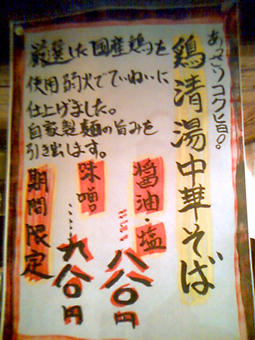 あっさりコク旨!
鶏清湯中華そば
厳選した国産鶏を
使用弱火でていねいに
仕上げました。
自家製麺の旨みを
引き出します。
醤油・塩
……八八〇円
味噌
……九八〇円
期間限定